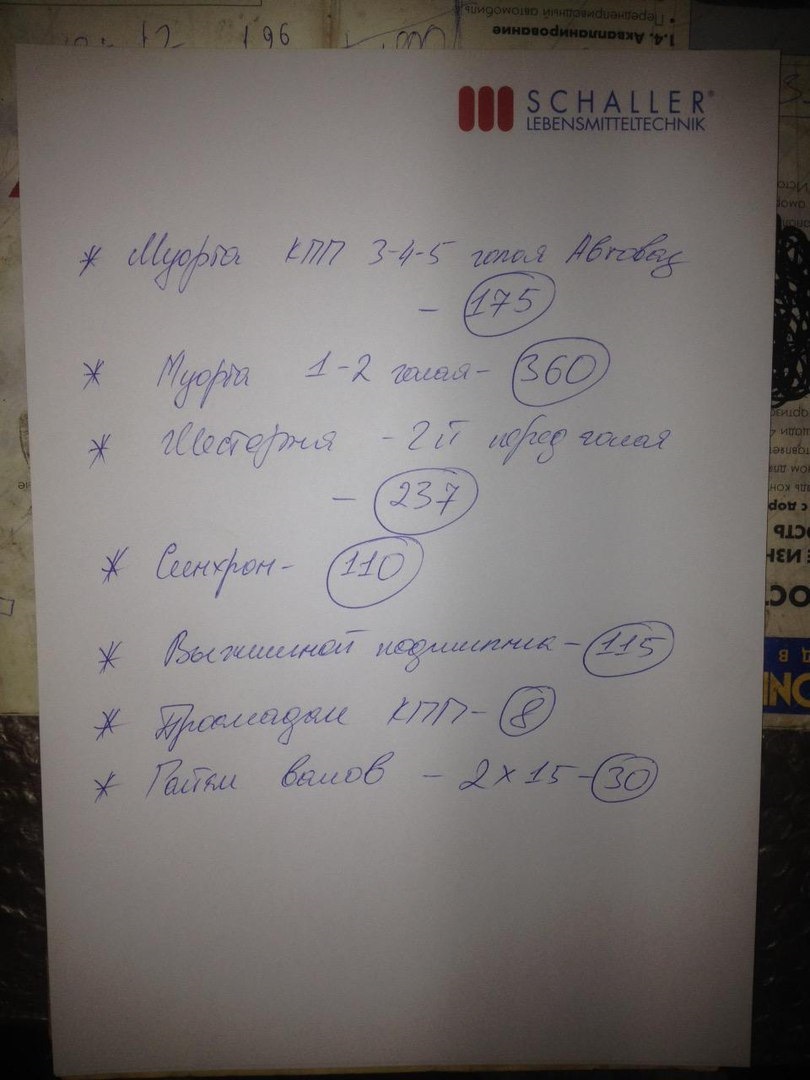 SCHALLER®
LEBENSMITTELTECHNIK
* Муфта КПП 3-4-5 голая Автоваз
- 175
* Муфта 1-2 голая - 360
* Шестерня - 2й перед голая
- 237
* Синхрон - 110
* Выжимной подшипник - 115
* Прокладки КПП - 8
* Гайки валов - 2х15 - 30
1.4. Аквапланирование
• Переднеприводный автомобиль
196